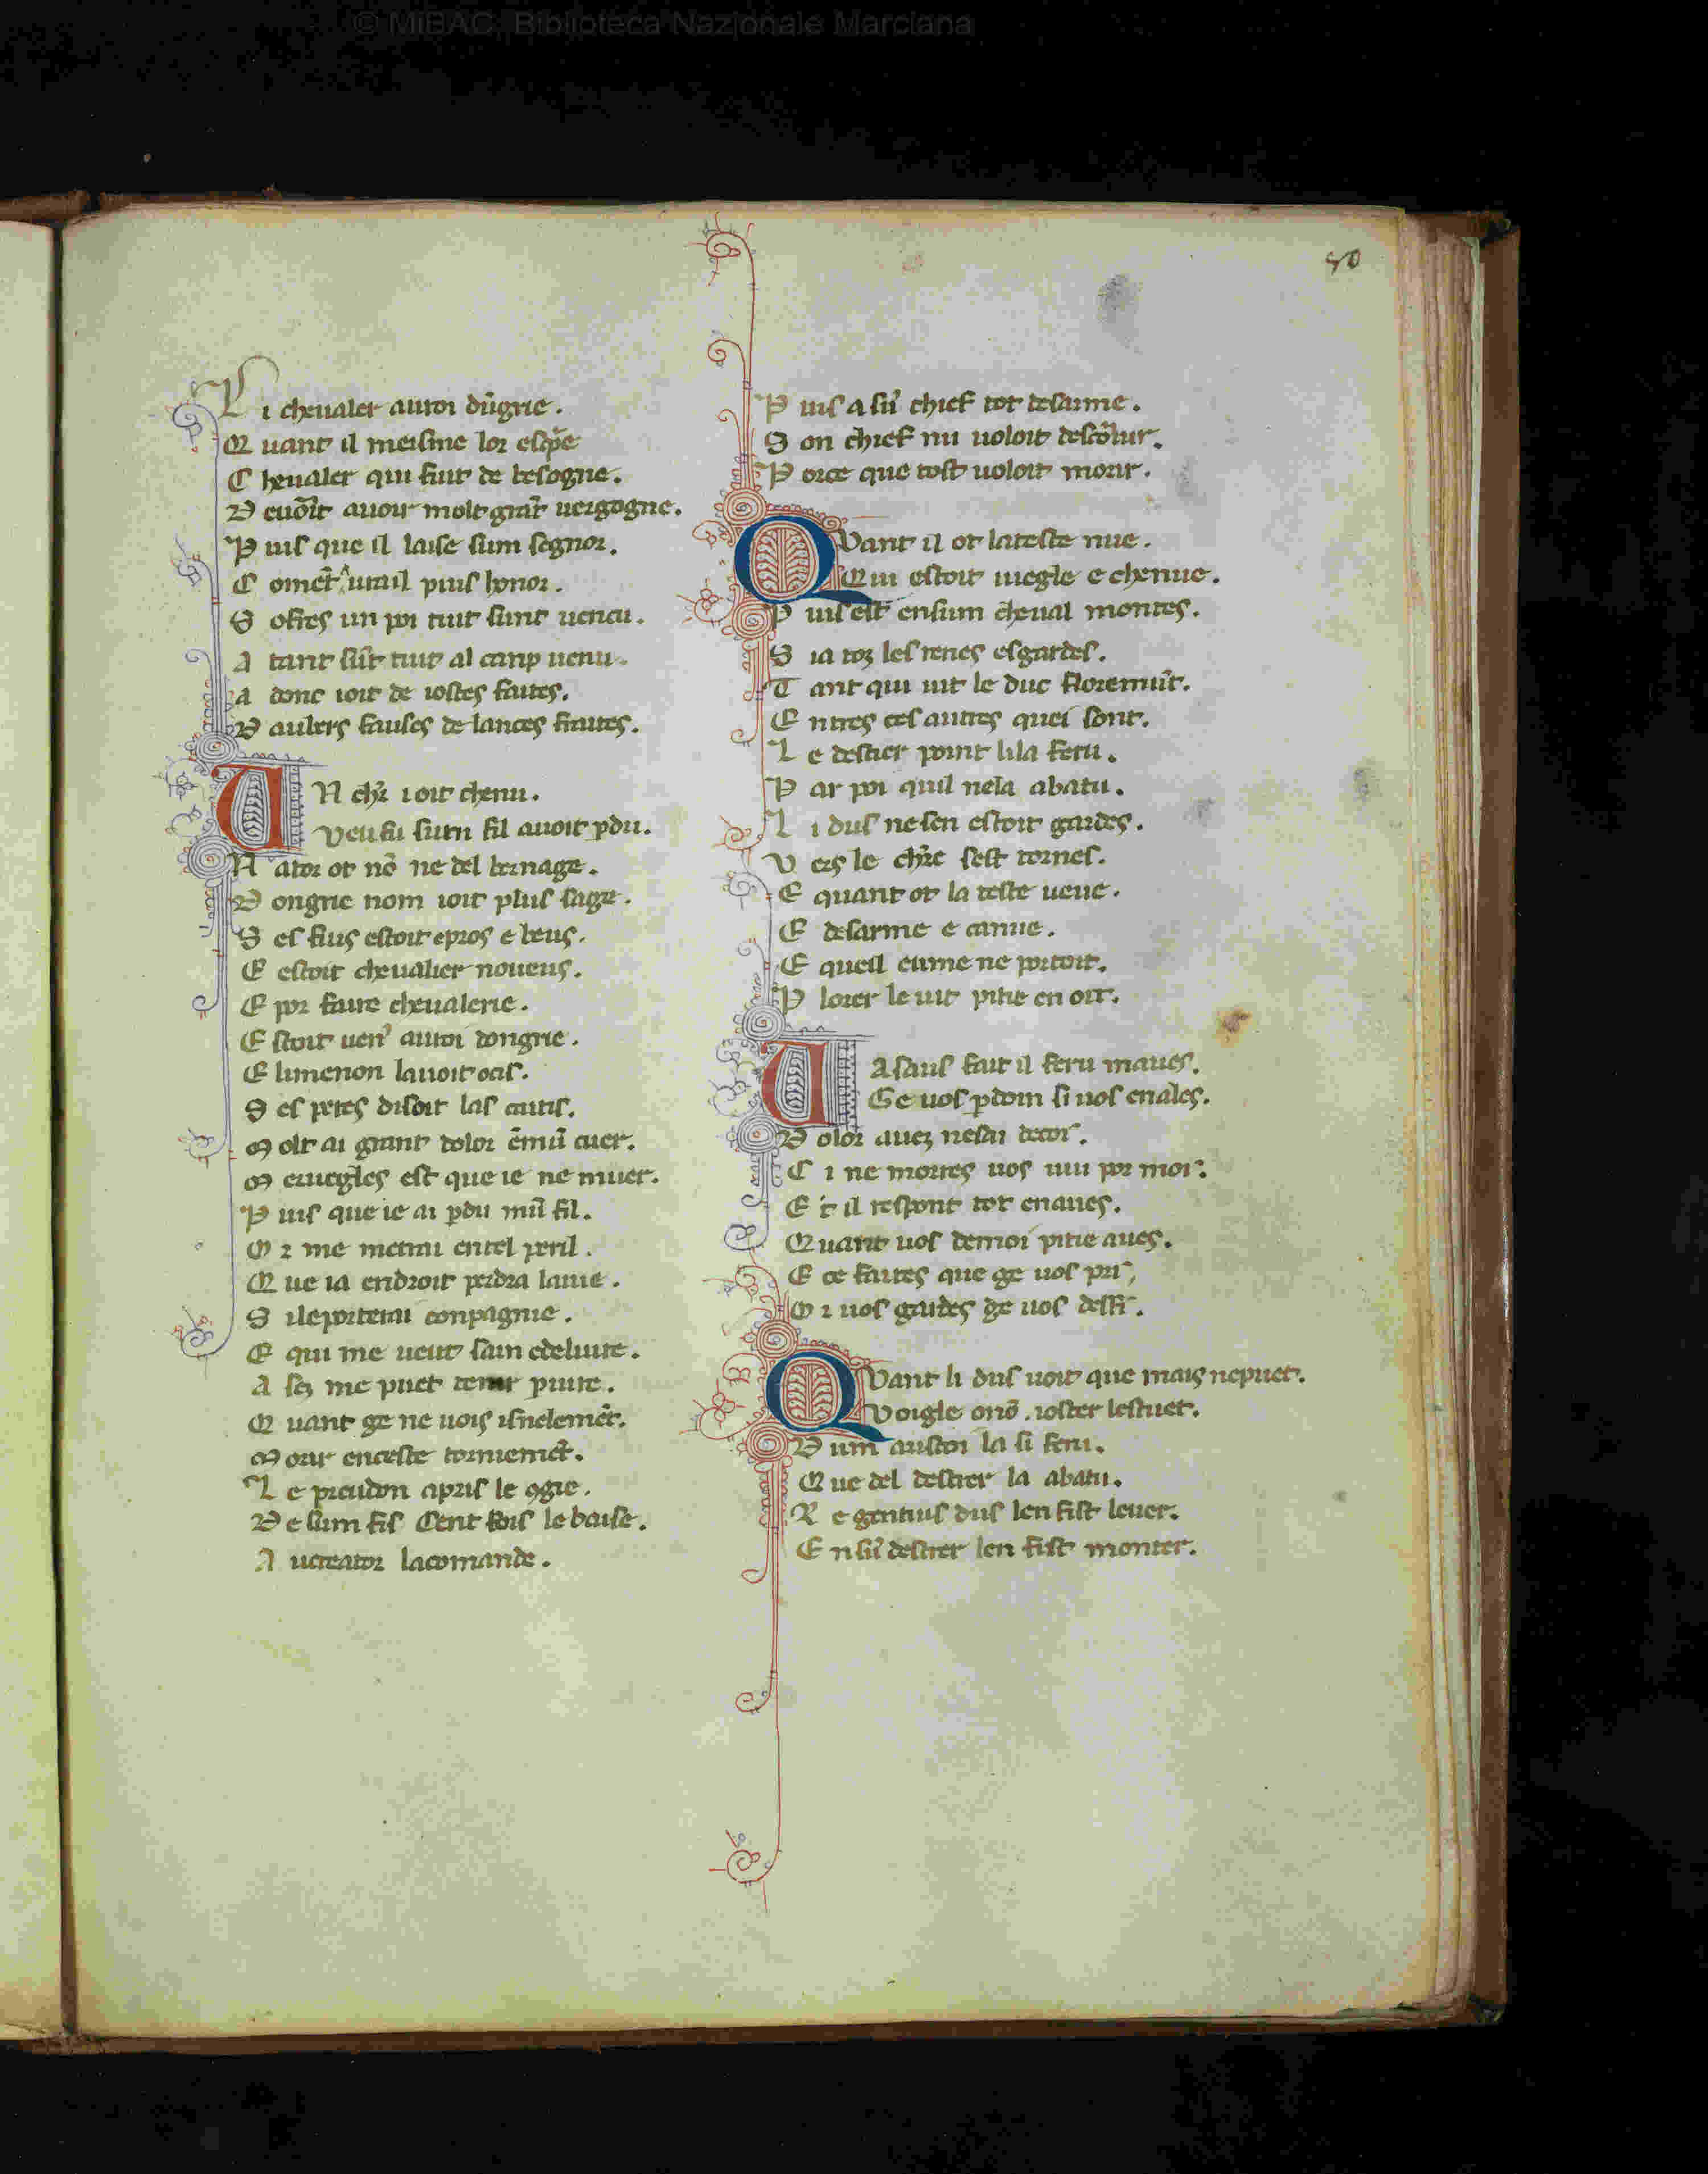 © MiBAC. Biblioteca Nazionale Marciana
50
L i cheualer auroi dūgrie.
Q uant il meisme lor
C heualer qui fuit de besogne.
D euoīt auoir molt grāt uergogne.
P uis que il laise sum segnor.
C omēt urail puis honor.
S ofres un poi tuit sunt uencu.
A tant sūt tuit al canp uenu.
a donc ioit de iostes faites.
D aubers fauses de lances fraites.
U N chr̄ ioit chenu.
Veu fu sum fil auoit pdu.
N ator ot nō ne del bernage.
D ongrie nom ioit plus sage.
S es fius estoit epros e beus.
E estoit cheualier noueus.
E por faire cheualerie.
E stoit uen' auroi dongrie.
E limenon lauoit ocis.
S es peres disoit las caitis.
M olt ai grant dolor ēmū cuer.
M eruegles est que ie ne muer.
P uis que ie ai pdu mū fil.
O r me metrai entel peril.
Q ue ia endroit perdra lauie.
S ileporterai conpagnie.
E qui me ueut sain edeliure.
A sez me puet tenir piure.
Q uant ge ne uois isnelemēt.
M orir enceste torniement.
L e preudon apris le ꝯgie.
D e sum fis Cent fois lebaise.
A ucreator lacomande.
P uis a sū chief tot desarme.
S on chief nu uoloit descōbrir.
P orce que tost uoloit morir.
Q Vant il ot lateste nue.
Qui estoit uiegle e chenue.
P uis est ensum cheual montes.
S ia toz les renes esgardes.
T ant qui uit le duc floremūt.
E ntres ces autres quei sont.
L e destier point lila feru.
P ar poi quil nela abatu.
L i dus nesen estoit gardes.
V ers le chr̄e sest tornes.
E quant ot la teste ueue.
E desarme e canue.
E queil eume ne portoit.
P lorer le uit pitie en oit.
U Asaus fait il feru maues.
Ge uos pdom si uos enales.
D olor auez nesai decoi.
C i ne morres uos uiu por moi.
E t il respont tot enaues.
Q uant uos demoi pitie aues.
E ce faites que ge uos pri,
O r uos gardes ge uos desfi.
Q Vant li dus uoit que mais nepuet.
Voigle onō. ioster lestuet.
D um auston la si feru.
Q ue del destrer la abatu.
R e gentius dus len fist leuer.
E n sū destrer len fist monter.